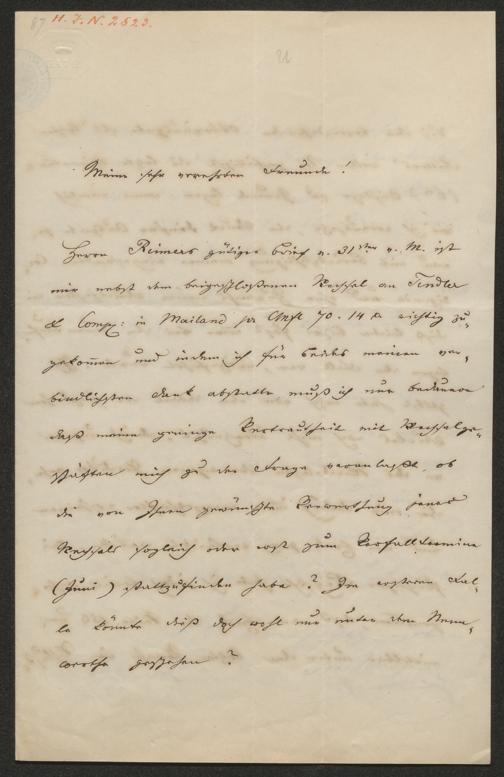 87 H. I. N. 2523.
Meine sehr verehrten Freunde!
Herrn Reimers gütiger Brief v. 31ten v. M. ist
mir nebst dem beigeschloßenen Wechsel an Tendler
& Comp: in Mailand pr 70. 14 x richtig zu-
gekommen und indem ich für beides meinen ver-
bindlichsten Dank abstatte muß ich nur bedauern
daß meine geringe Vertrautheit mit Wechselge-
schäften mich zu der Frage veranlaßt, ob
die von Ihnen gewünschte Verwerthung jenes
Wechsels sogleich oder erst zum Verfallstermine
(Juni) stattzufinden habe? Im ersteren Fal-
le könnte dieß doch wohl nur unter dem Nenn-
werthe geschehen?